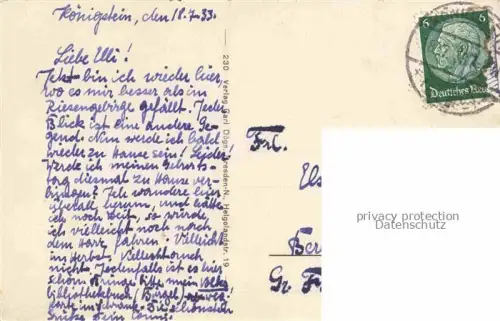 Königstein, den 18.7.33.
Liebe Elli!
Jetzt bin ich wieder hier,
wo es mir besser als im
Riesengebirge gefällt. Jeder
Blick ist eine andere Ge-
gend. Nun werde ich bald
wieder zu Hause sein! Leider
werde ich meinen Geburts-
tag diesmal zu Hause ver-
bringen? Ich wandere hier
überall herum, und hätte
ich noch Zeit, so würde
ich vielleicht noch nach
dem Harz fahren. Vielleicht
im Herbst. Vielleicht auch
nicht. Jedenfalls ist es hier
schön. Bringe bitte mein Volks
bibliothekbuch
karte im Schrank. Die schönsten
Grüsse Dein
230 Verlag Carl Döge, Dresden-N., Helgolandstr. 19
6
6
Deutsches Reich
Frl.
Els
Ber
Gr. Fr
privacy protection
Datenschutz